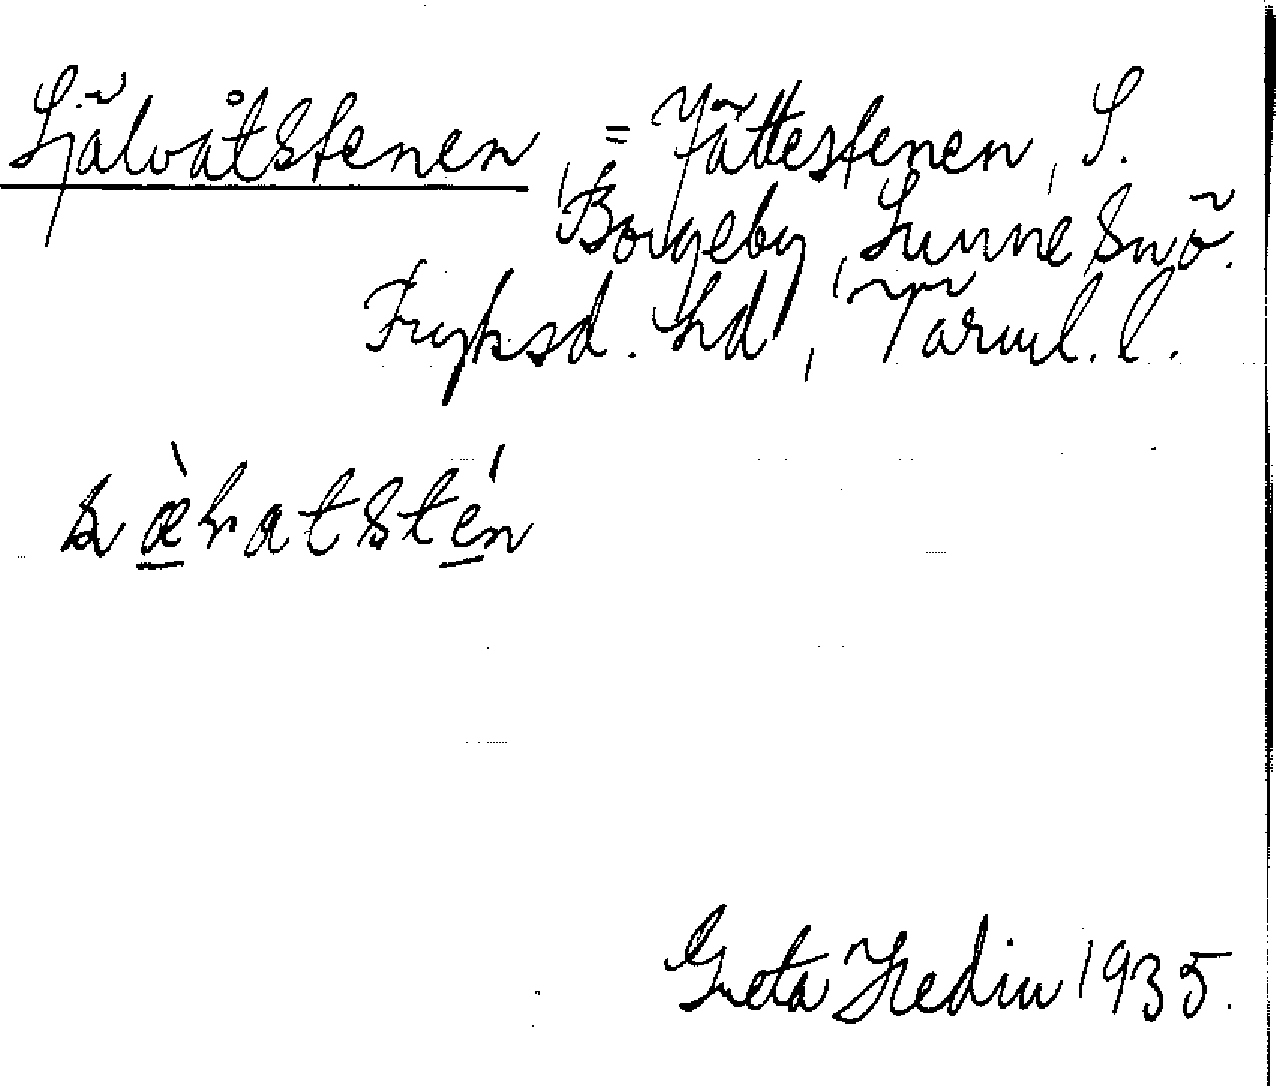 Självåtstenen, = Jättestenen, S.
Borgeby, Sunne Snö.
Fryksd. hd, Värml. l.
Greta Hedin 1935.